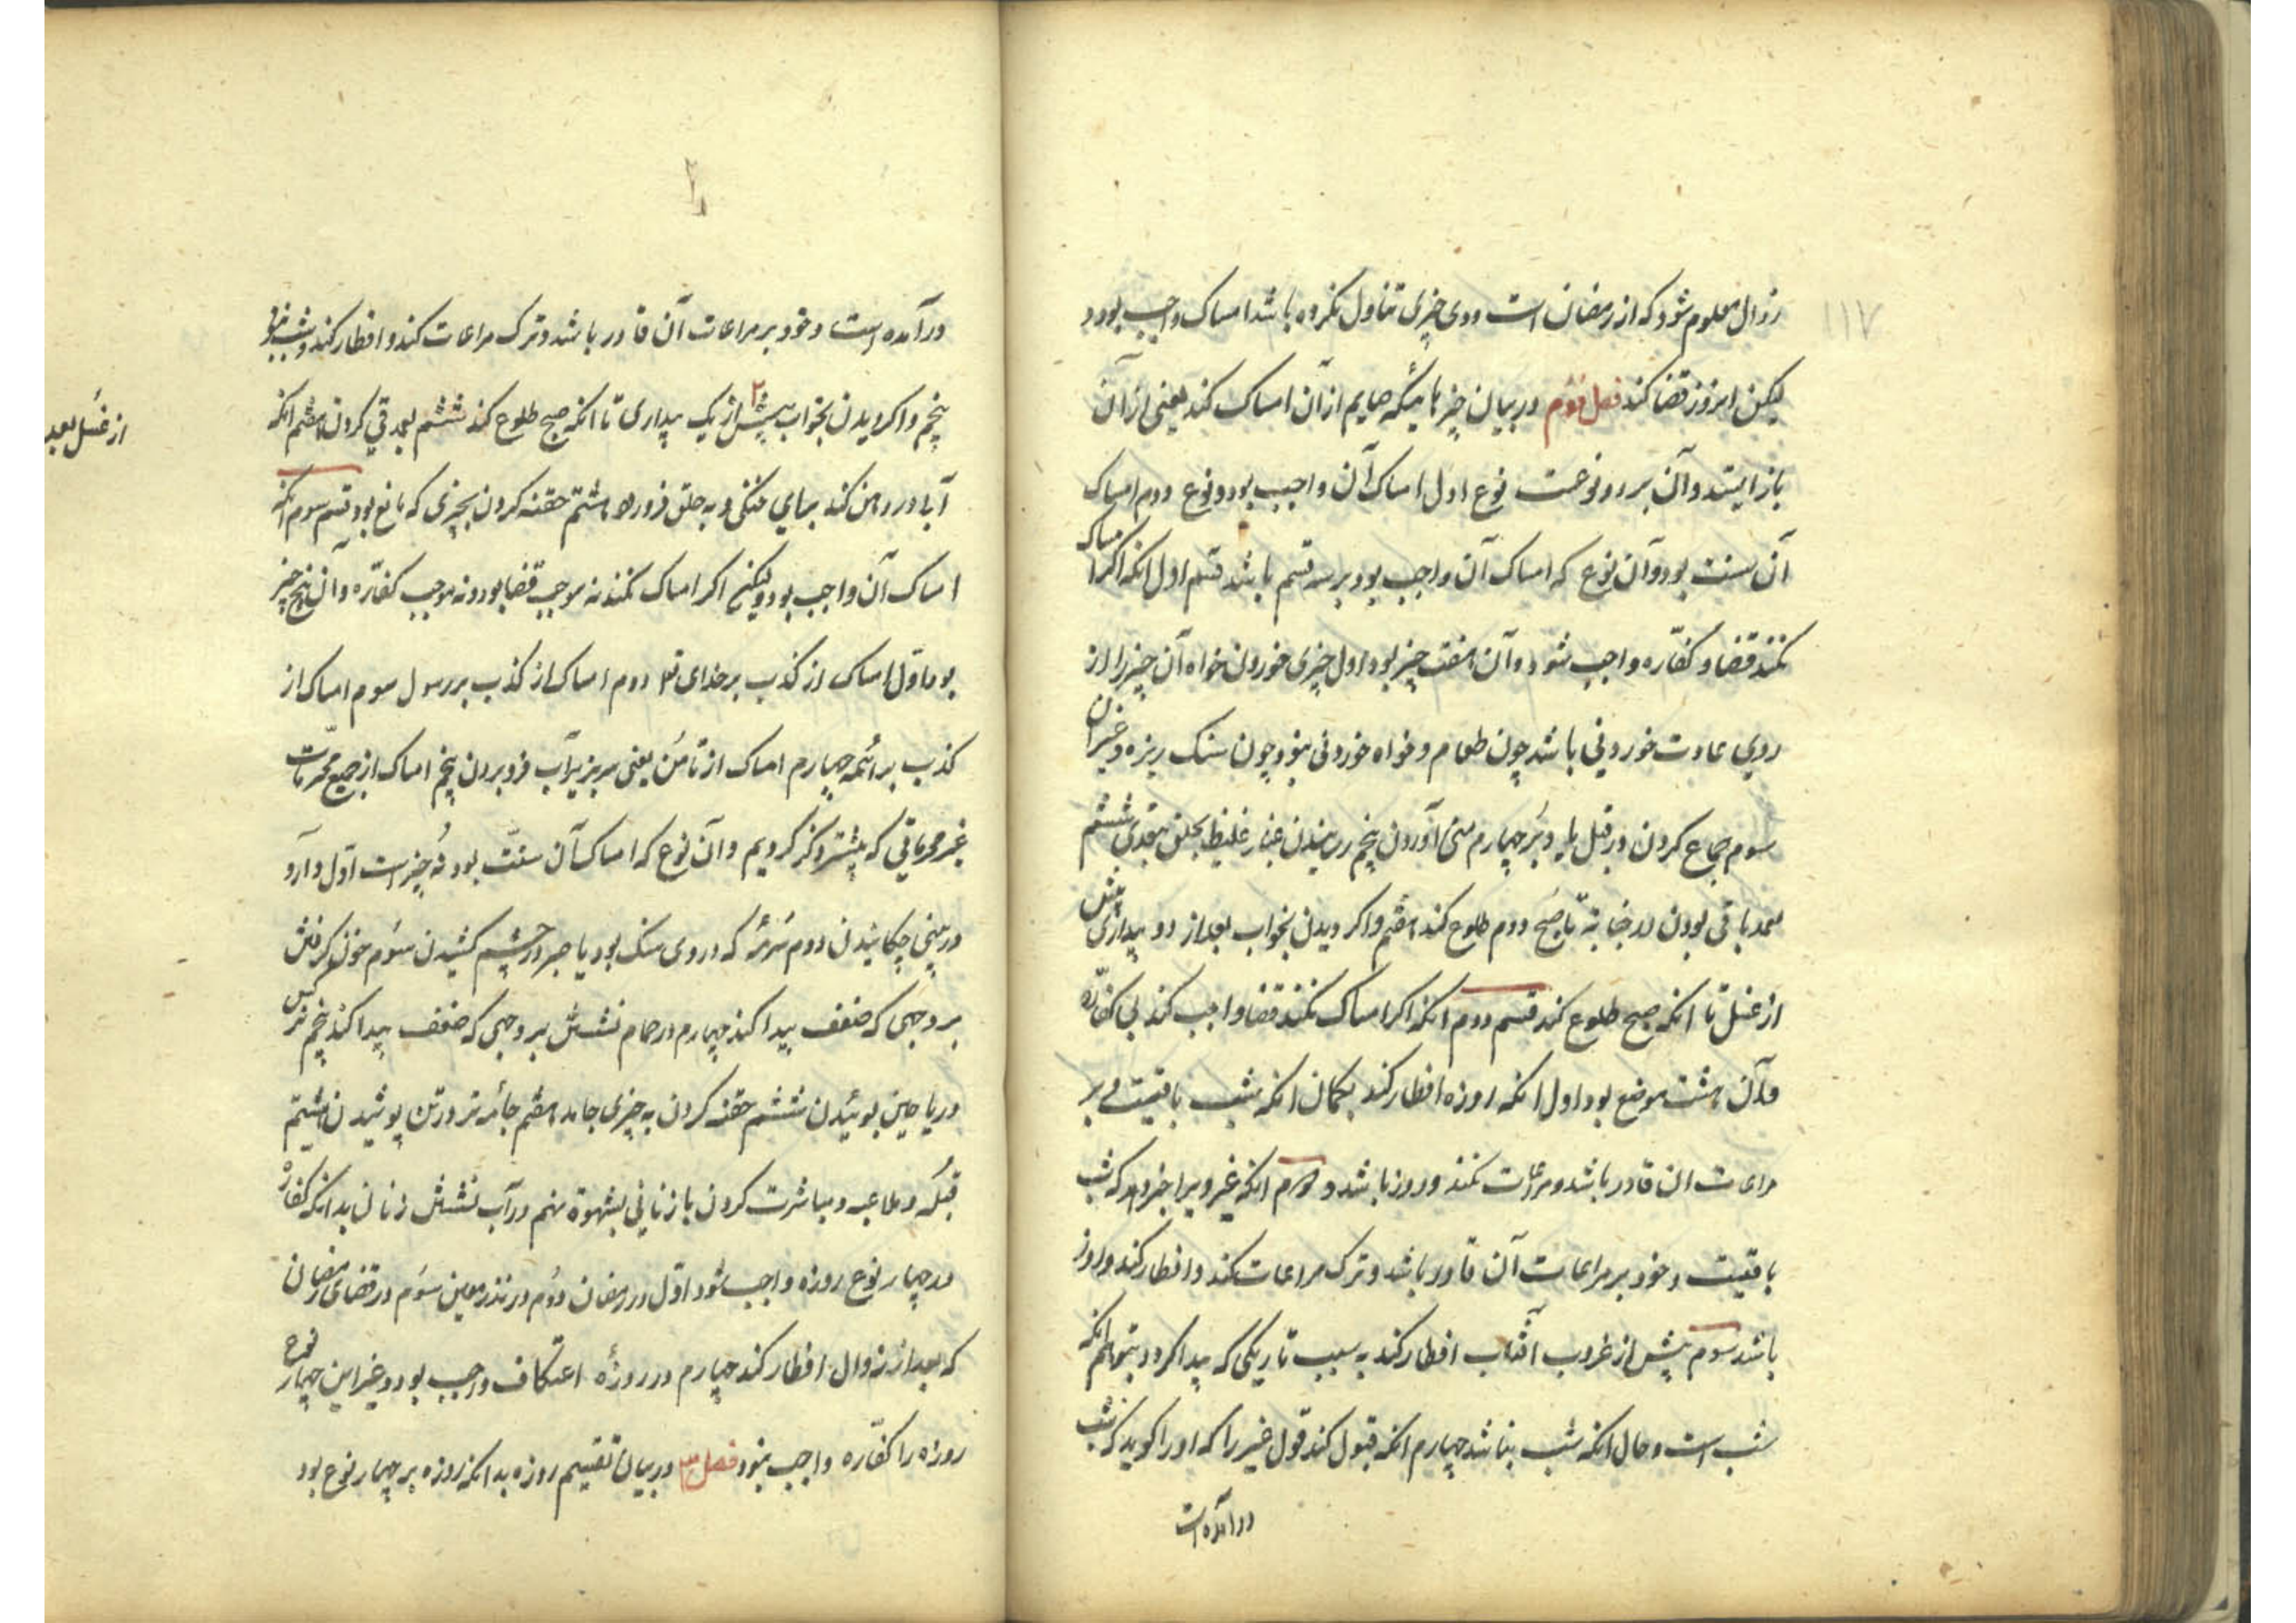 ۱۱۷
زوال معلوم شود که از رمضان است و وی چیزی تناول نکرده باشد امساک واجب بود و
لیکن امروز قضا کند فصل دوم در بیان چیزهائیکه صایم از آن امساک کند یعنی از آن
باز ایستد و آن بر دو نوعست نوع اول امساک آن واجب بود و نوع دوم امساک
آن سنت بود و آن نوع که امساک آن واجب بود بر سه قسم باشد قسم اول انکه اگر امساک
نکند قضا و کفّاره واجب شود و آن هفت چیز بود اول چیزی خوردن خواه آن چیز را از
روی عادت خوردنی باشد چون طعام و خواه خوردنی نبود چون سنک ریزه و غیر آن
سوم جماع کردن در قبل یا دبر چهارم منی آوردن پنجم رسانیدن غبار غلیظ بحلق بتعدی ششم
بعمد باقی بودن در جنابة تا صبح دوم طلوع کند هفتم واکردیدن بخواب بعد از دو بیداری پیش
از غسل تا انکه صبح طلوع کند قسم دوم انکه اکر امساک نکند قضا واجب کند بی کفّاره
و آن هشت موضع بود اول انکه روزه افطار کند بکمان انکه شب باقیست و بر
مراعات ان قادر باشد و مراعات نکند و روز باشد دوم انکه غیر ویرا خبر دهد که شب
باقیست و خود بر مراعات آن قادر باشد و ترک مراعات کند و افطار کند و روز
باشد سوم پیش از غروب آفتاب افطار کند به سبب تاریکی که پیدا کردد بتوهم انکه
شب است و حال انکه شب نباشد چهارم انکه قبول کند قول غیر را که او را کوید که شب
درآمده است
درآمده است و خود بر مراعات آن قادر باشد و ترک مراعات کند و افطار کند و شب نبود
پنجم واکردیدن بخواب پیش از یک بیداری تا انکه صبح طلوع کند ششم بعمد قی کردن هفتم انکه
از غسل بعد
آب در دهن کند برای خنکی و به حلق فرو رود هشتم حقنه کردن بچیزی که مایع بود قسم سوم انکه
امساک آن واجب بود ولیکن اکر امساک نکند نه موجب قضا بود و نه موجب کفّاره و آن پنج چیز
بود اوّل امساک از کذب بر خدای تعا دوم امساک از کذب بر رسول سوم امساک از
کذب بر ائمه چهارم امساک از تامس یعنی سر بزیر آب فرو بردن پنجم امساک از جمیع محرّمات
غیر محرماتی که پیشتر ذکر کردیم و آن نوع که امساک آن سنّت بود نُه چیز است اوّل دارو
در بینی چکانیدن دوم سُرمهٔ که در وی مشک بود یا صبر در چشم کشیدن سوم خون گرفتن
بر وجهی که ضعف پیدا کند چهارم در حمام نشستن بر وجهی که ضعف پیدا کند پنجم نرکس
و ریاحین بوئیدن ششم حقنه کردن به چیزی جامد هفتم جامهٔ تر در تن پوشیدن هشتم
قبله و ملاعبه و مباشرت کردن با زنانی بشهوة نهم در آب نشستن زنان بدانکه کفاره
در چهار نوع روزه واجب شود اوّل در رمضان دوُم در نذر معین سوُم در قضای رمضان
که بعد از زوال افطار کند چهارم در روزهٔ اعتکاف واجب بود و غیر این چهار نوع
روزه را کفّاره واجب نبود فصل ۳ در بیان تقسیم روزه بدانکه روزه بر چهار نوع بود